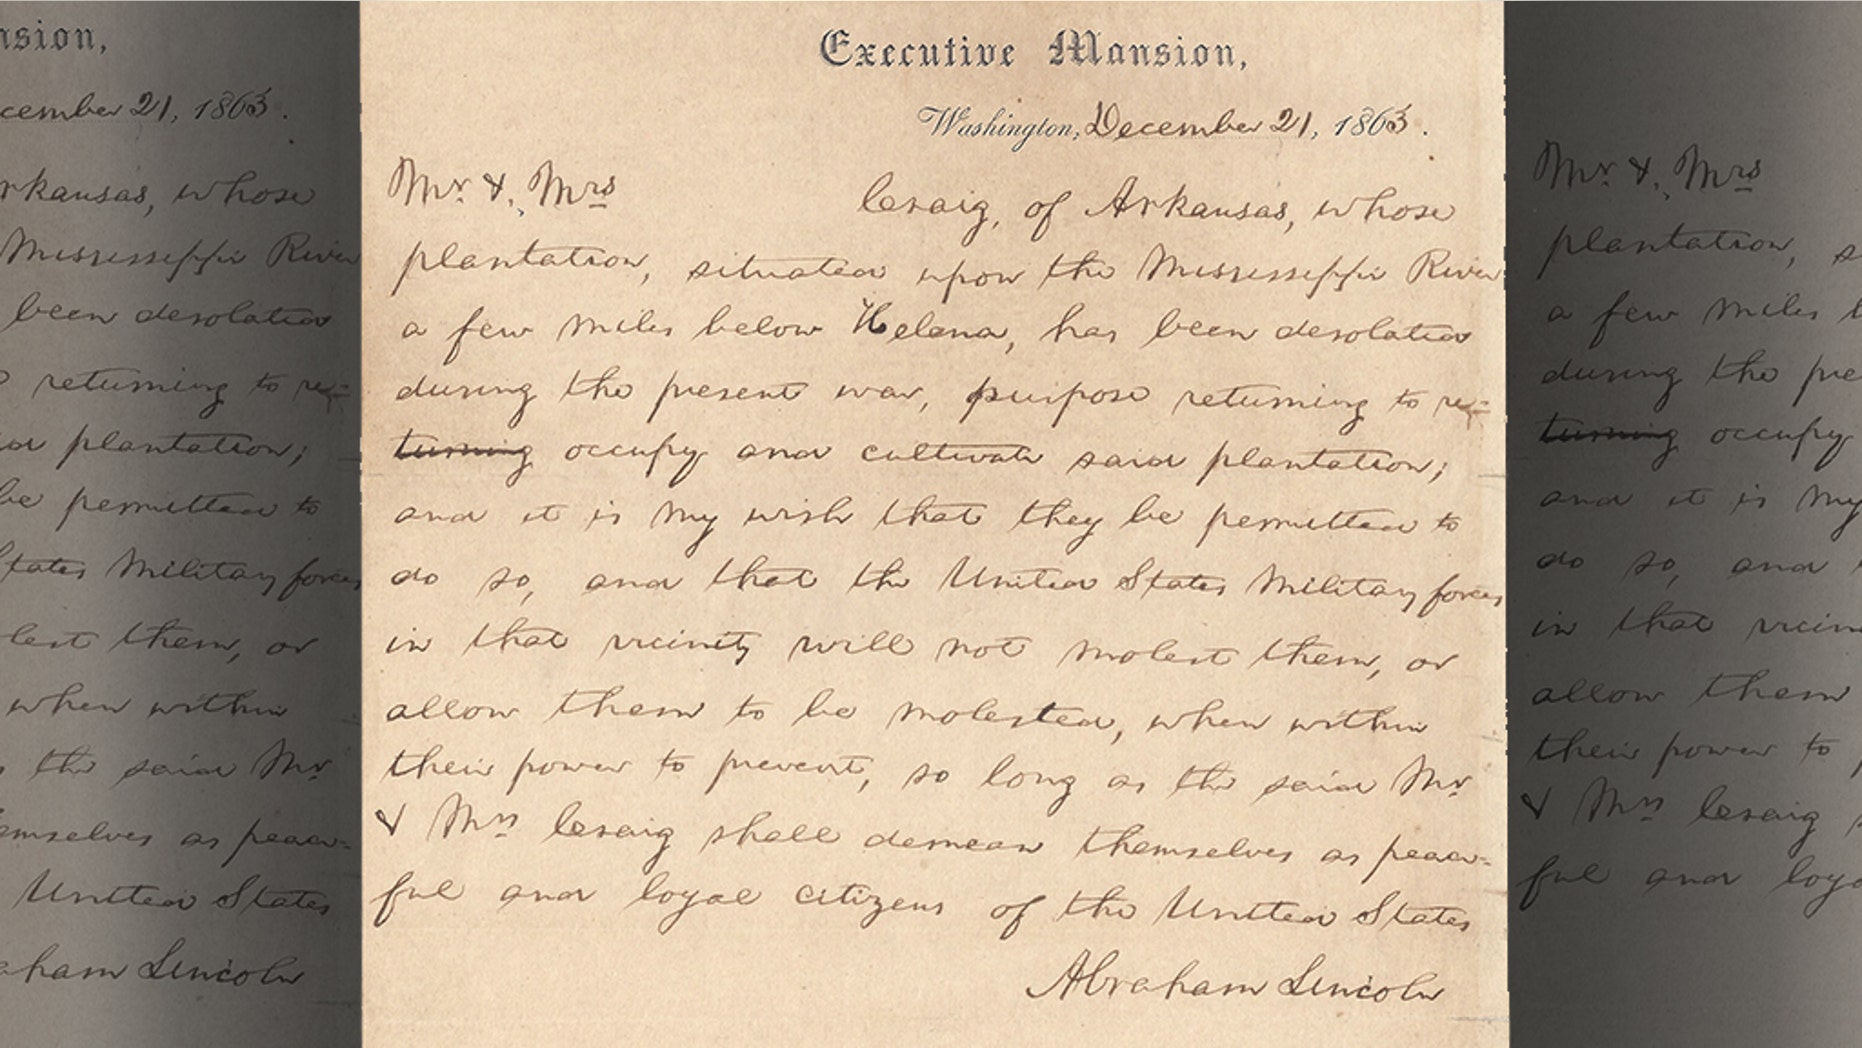 Executive Mansion,
Washington, December 21, 1863.
Mr. & Mrs Craig, of Arkansas, whose
plantation, situated upon the Mississippi River
a few miles below Helena, has been desolated
during the present war, purpose returning to re-
turning occupy and cultivate said plantation;
and it is my wish that they be permitted to
do so, and that the United States Military forces
in that vicinity will not molest them, or
allow them to be molested, when within
their power to prevent, so long as the said Mr
& Mrs Craig shall demean themselves as peace-
ful and loyal citizens of the United States
Abraham Lincoln